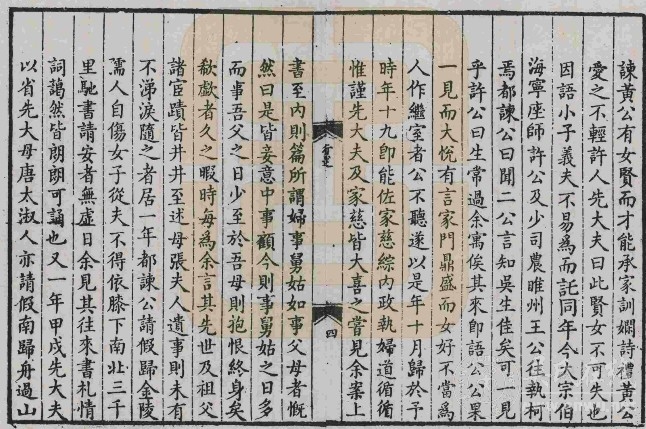 諫黃公有女賢而才能承家訓嫻詩禮黃公
愛之不輕許人先大夫曰此賢女不可失也
因語小子義夫不易為而託同年今大宗伯
海寧座師許公及少司農睢州王公往執柯
焉都諫公曰聞二公言知吳生佳矣可一見
乎許公曰生常過余寓俟其來即語公公果
一見而大悅有言家門鼎盛而女好不當為
人作繼室者公不聽遂以是年十月歸於予
時年十九即能佐家慈綜內政執婦道循循
惟謹先大夫及家慈皆大喜之嘗見余案上
奇晏
四
書至內則篇所謂婦事舅姑如事父母者慨
然曰是皆妾意中事顧今則事舅姑之日多
而事吾父之日少至於吾母則抱恨終身矣
欷歔者久之暇時每為余言其先世及祖父
諸宦蹟皆井井至述母張夫人遺事則未有
不涕淚隨之者居一年都諫公請假歸金陵
孺人自傷女子從夫不得依膝下南北三千
里馳書請安者無虛日余見其往來書札情
詞藹然皆朗朗可誦也又一年甲戌先大夫
以省先大母唐太淑人亦請假南歸舟過山